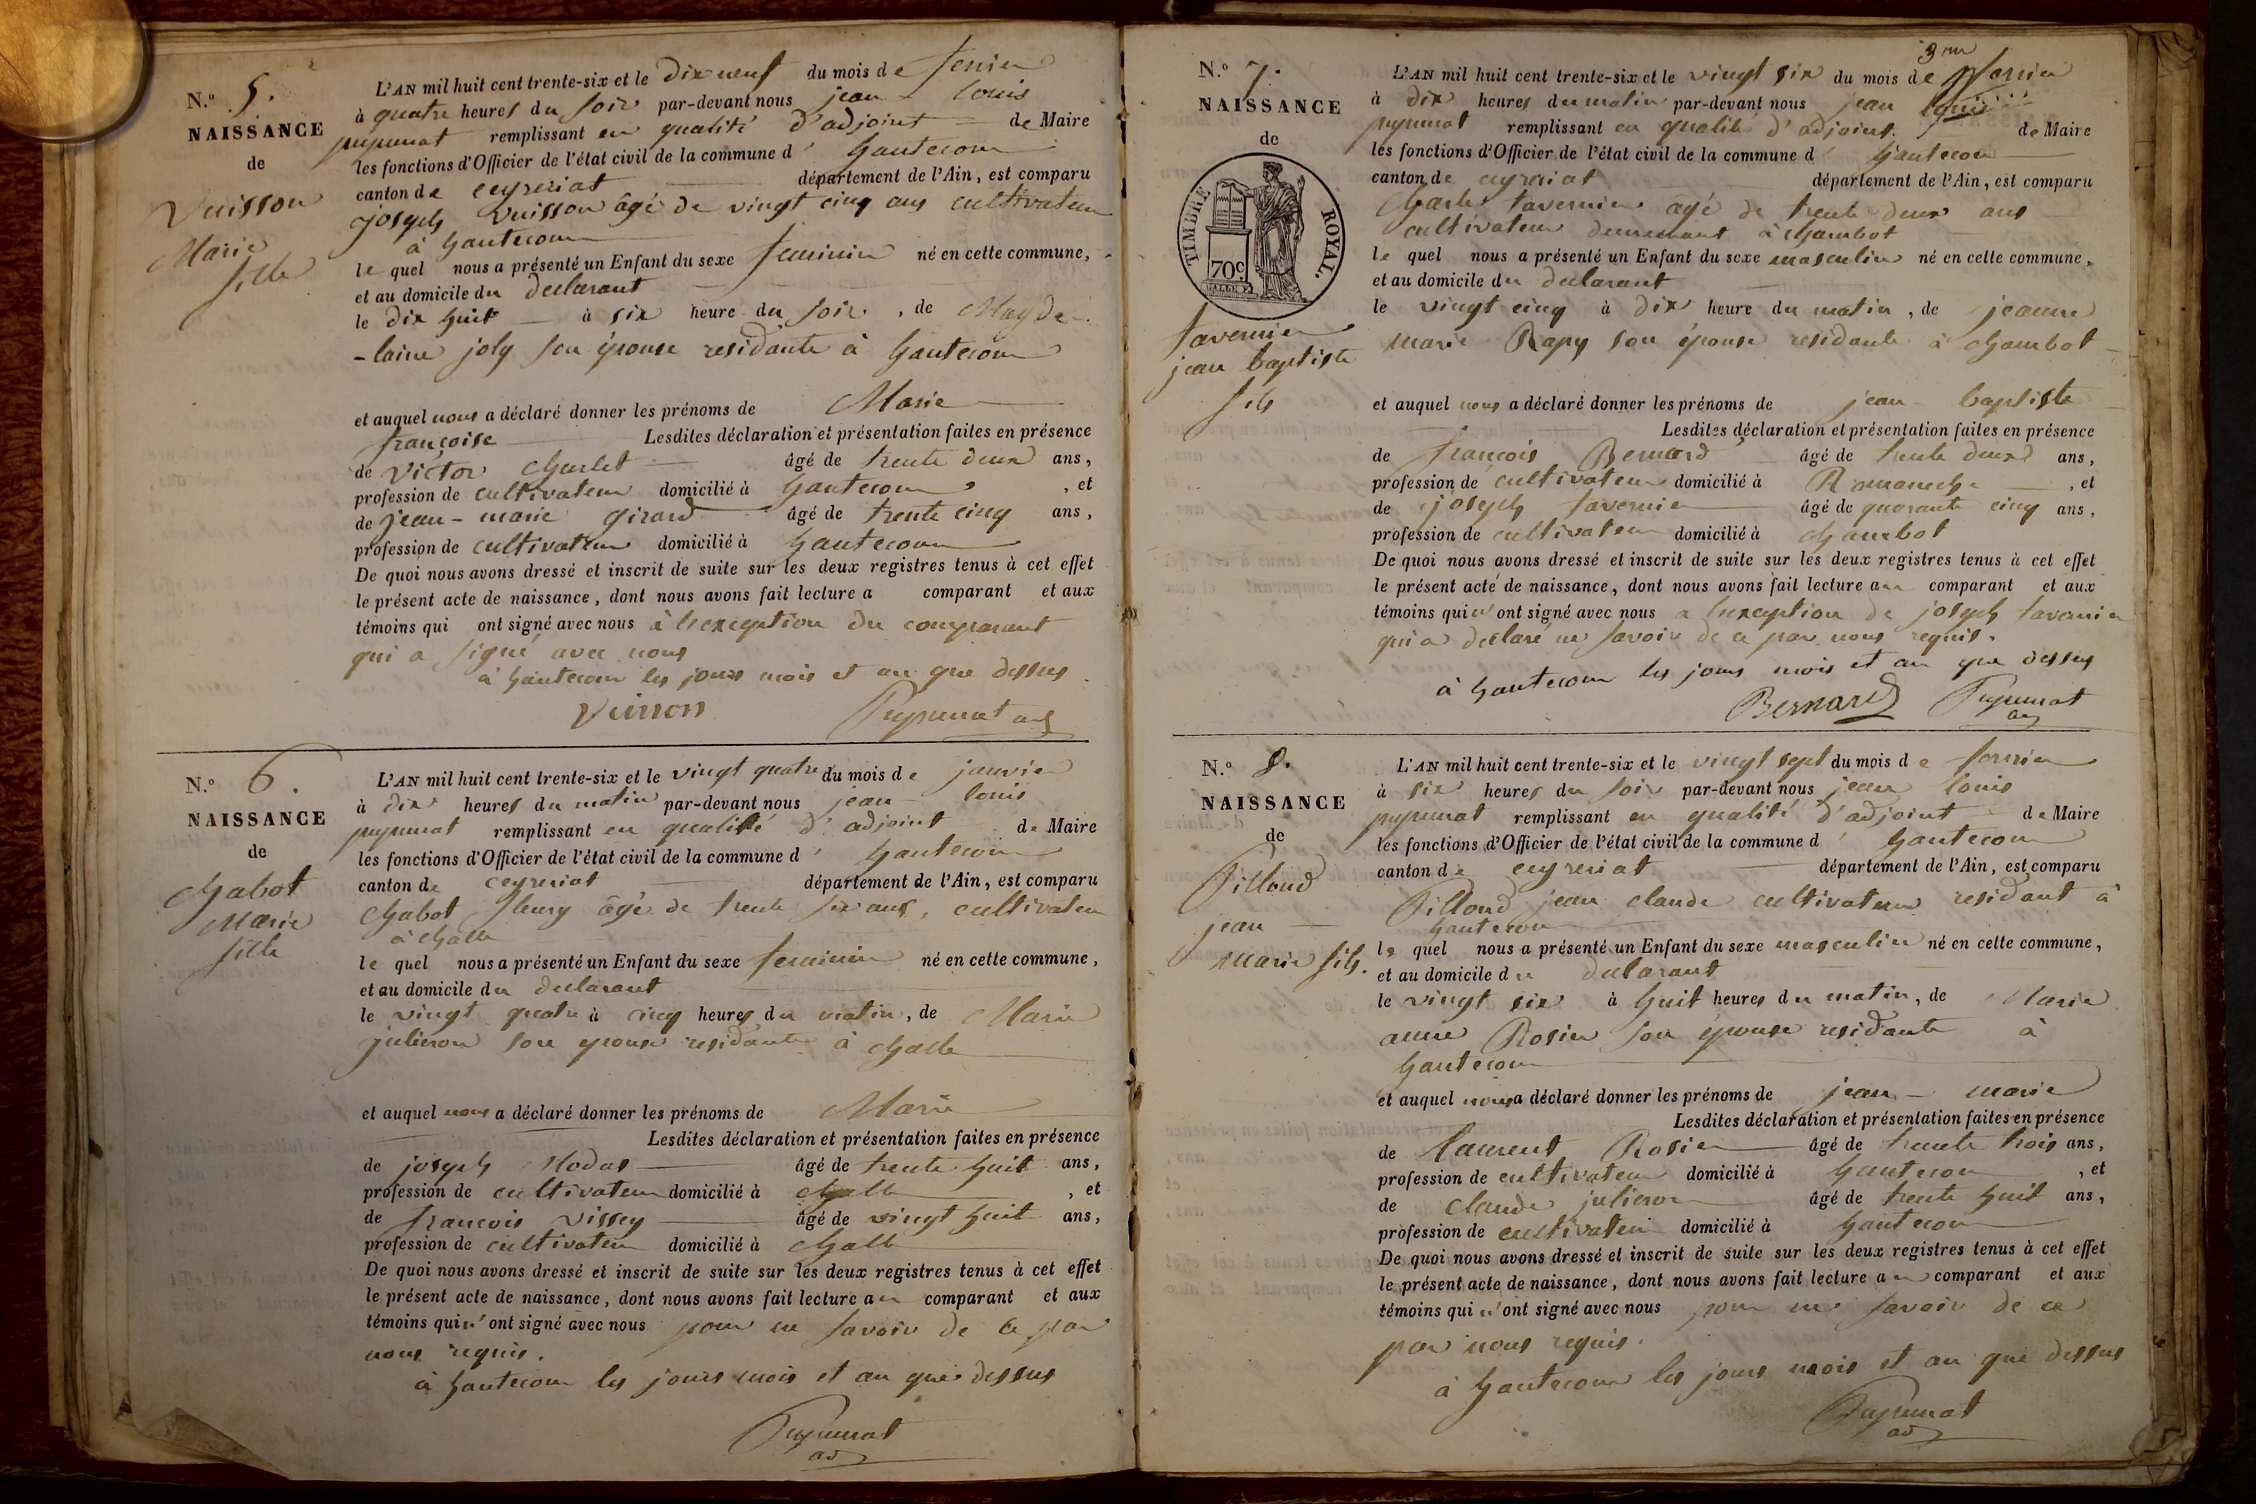 N.º 5.
NAISSANCE
de
Vuisson
Marie
fille
L'AN mil huit cent trente-six et le dix neuf du mois de
à quatre heures du soir par-devant nous jean louis
pupunat remplissant en qualité d'adjoint de Maire
les fonctions d'Officier de l'état civil de la commune d' hautecour
canton de ceyzeriat département de l'Ain, est comparu
joseph Vuisson âgé de vingt cinq ans cultivateur
à hautecour
le quel nous a présenté un Enfant du sexe feminin né en cette commune,
et au domicile du declarant
le dix huit à six heure du soir, de Magde-
-laine joly son épouse residante à hautecour
et auquel nous a déclaré donner les prénoms de Marie
françoise Lesdites déclaration et présentation faites en présence
de Victor Charlet âgé de trente deux ans,
profession de cultivateur domicilié à hautecour, et
de jean-marie girard âgé de trente cinq ans,
profession de cultivateur domicilié à hautecour
De quoi nous avons dressé et inscrit de suite sur les deux registres tenus à cet effet
le présent acte de naissance, dont nous avons fait lecture a comparant et aux
témoins qui ont signé avec nous à l'exception du comparant
qui a signé avec nous
à hautecour les jours mois et an que dessus
Vuisson Pupunat adj
N.º 6.
NAISSANCE
de
Chabot
Marie
fille
L'AN mil huit cent trente-six et le vingt quatre du mois de janvier
à dix heures du matin par-devant nous jean louis
pupunat remplissant en qualité d'adjoint de Maire
les fonctions d'Officier de l'état civil de la commune d' hautecour
canton de ceyzeriat département de l'Ain, est comparu
Chabot fleury âgé de trente six ans, cultivateur
à challe
le quel nous a présenté un Enfant du sexe feminin né en cette commune,
et au domicile du declarant
le vingt quatre à cinq heures du matin, de Marie
julieron son epouse residante à challe
et auquel nous a déclaré donner les prénoms de Marie
Lesdites déclaration et présentation faites en présence
de joseph Modas âgé de trente huit ans,
profession de cultivateur domicilié à challe, et
de francois Vissey âgé de vingt huit ans,
profession de cultivateur domicilié à challe
De quoi nous avons dressé et inscrit de suite sur les deux registres tenus à cet effet
le présent acte de naissance, dont nous avons fait lecture au comparant et aux
témoins qui n'ont signé avec nous pour ne savoir de ce par
nous requis.
à hautecour les jours mois et an que dessus
Pupunat
adj
N.º 7.
NAISSANCE
de
TIMBRE ROYAL.
70c.
tavernier
jean baptiste
fils
L'AN mil huit cent trente-six et le vingt six du mois de
à dix heures du matin par-devant nous jean louis
pupunat remplissant en qualité d'adjoint de Maire
les fonctions d'Officier de l'état civil de la commune d' hautecour
canton de ceyzeriat département de l'Ain, est comparu
Charles tavernier agé de trente deux ans
cultivateur demeurant à chambot
le quel nous a présenté un Enfant du sexe masculin né en cette commune,
et au domicile du declarant
le vingt cinq à dix heure du matin, de jeanne
marie Rapy son épouse residante à chambot
et auquel nous a déclaré donner les prénoms de jean baptiste
Lesdites déclaration et présentation faites en présence
de françois Bernard âgé de trente deux ans,
profession de cultivateur domicilié à Romaneche, et
de joseph tavernier âgé de quarante cinq ans,
profession de cultivateur domicilié à chambot
De quoi nous avons dressé et inscrit de suite sur les deux registres tenus à cet effet
le présent acte de naissance, dont nous avons fait lecture au comparant et aux
témoins qui n'ont signé avec nous a l'exception de joseph tavernier
qui a declaré ne savoir de ce par nous requis.
à hautecour les jours mois et an que dessus
Bernard Pupunat
adj
N.º 8.
NAISSANCE
de
Pilloud
jean
marie fils.
L'AN mil huit cent trente-six et le vingt sept du mois de
à six heures du soir par-devant nous jean louis
pupunat remplissant en qualité d'adjoint de Maire
les fonctions d'Officier de l'état civil de la commune d' hautecour
canton de ceyzeriat département de l'Ain, est comparu
Pilloud jean claude cultivateur residant à
hautecour
le quel nous a présenté un Enfant du sexe masculin né en cette commune,
et au domicile du declarant
le vingt six à huit heures du matin, de Marie
anne Rosier son épouse residante à
hautecour
et auquel nous a déclaré donner les prénoms de jean-marie
Lesdites déclaration et présentation faites en présence
de laurent Rosier âgé de trente trois ans,
profession de cultivateur domicilié à hautecour, et
de claude julieron âgé de trente huit ans,
profession de cultivateur domicilié à hautecour
De quoi nous avons dressé et inscrit de suite sur les deux registres tenus à cet effet
le présent acte de naissance, dont nous avons fait lecture au comparant et aux
témoins qui n'ont signé avec nous pour ne savoir de ce
par nous requis.
à hautecour les jours mois et an que dessus
Pupunat
adj